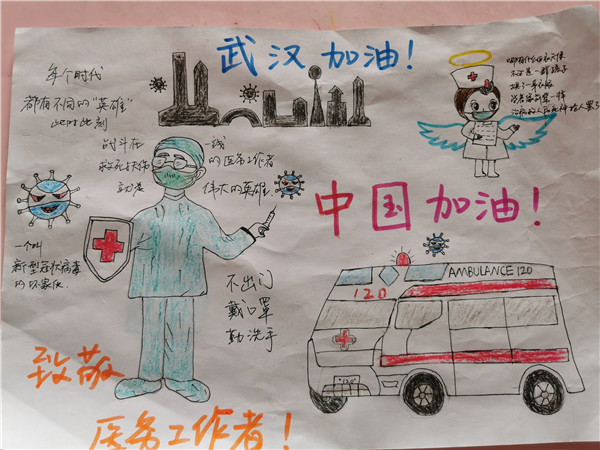 武汉加油!
每个时代
都有不同的“英雄”
此时此刻
战斗在
救死扶伤
一线
的医务工作者
伟大的英雄
哪有什么白衣天使
不过是一群孩子
换了一身衣服
中国加油!
一个叫
新型冠状病毒
的坏家伙
不出门
戴口罩
勤洗手
AMBULANCE 120
120
致敬
医务工作者!